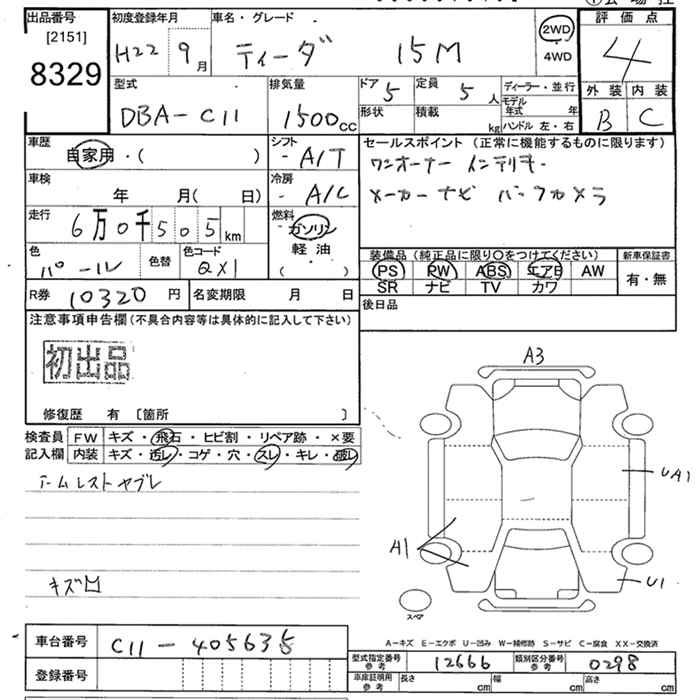 出品番号 初度登録年月 車名・グレード 評価点
[2151]
8329
H22 9月 ティーダ 15M 2WD 4WD 4
型式 排気量 ドア 定員 ディーラー・並行 外装 内装
DBA-C11 1500cc 5 5人 モデル年式 年 B C
形状 積載 kg ハンドル 左・右
車歴 シフト セールスポイント (正常に機能するものに限ります)
自家用・( ) -A/T ワンオーナー インテリキー
車検 冷房
年 月( 日) -A/C メーカーナビ バックカメラ
走行 燃料
6万0千505km ガソリン
色 色替 色コード 軽油 装備品 (純正品に限り○をつけてください) 新車保証書
パール QX1 ( ) PS PW ABS エアB AW 有・無
SR ナビ TV カワ
R券 10320円 名変期限 月 日 後日品
注意事項申告欄(不具合内容等は具体的に記入して下さい)
初出品
修復歴 有 [箇所 ]
検査員 FW キズ・飛石・ヒビ割・リペア跡・×要
記入欄 内装 キズ・汚レ・コゲ・穴・スレ・キレ・破レ
アームレストヤブレ
キズ凹
A3
UA1
A1
U1
スペア
A-キズ E-エクボ U-凹み W-補修跡 S-サビ C-腐食 XX-交換済
車台番号 C11-405635
型式指定番号 参考 12666 類別区分番号 参考 0298
登録番号
車庫証明用 参考 長さ cm 幅 cm 高さ cm